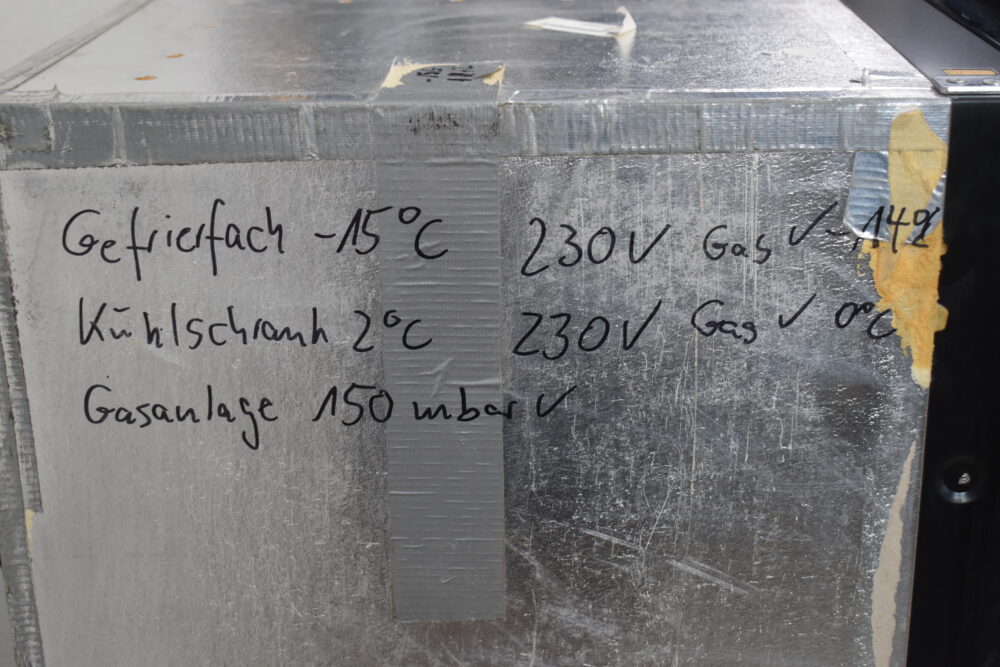 Gefrierfach -15°C 230V Gas ✓ -14°C
Kühlschrank 2°C 230V Gas ✓ 0°C
Gasanlage 150 mbar ✓